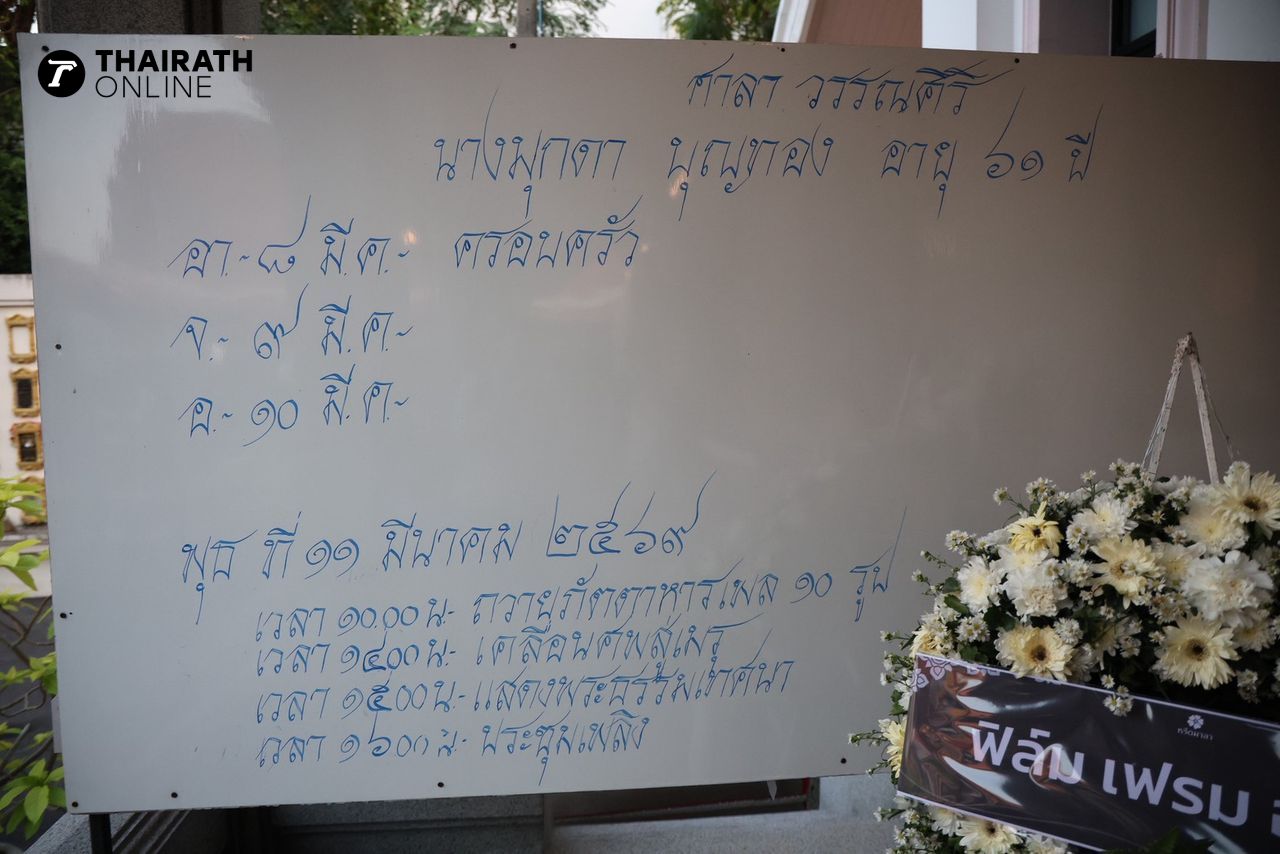 THAIRATH
ONLINE
ศาลา วรรณศิริ
นางมุกดา บุญทอง อายุ ๖๑ ปี
อา.- ๘ มี.ค.- ครอบครัว
จ.- ๙ มี.ค.-
อ.- ๑๐ มี.ค.-
พุธ ที่ ๑๑ มีนาคม ๒๕๖๙
เวลา ๑๐.๐๐ น.- ถวายภัตตาหารเพล ๑๐ รูป
เวลา ๑๔๐๐ น.- เคลื่อนศพสู่เมรุ
เวลา ๑๕๐๐ น.- แสดงพระธรรมเทศนา
เวลา ๑๖๐๐ น.- ประชุมเพลิง
หรีดมาลา
ฟิล์ม เฟรม